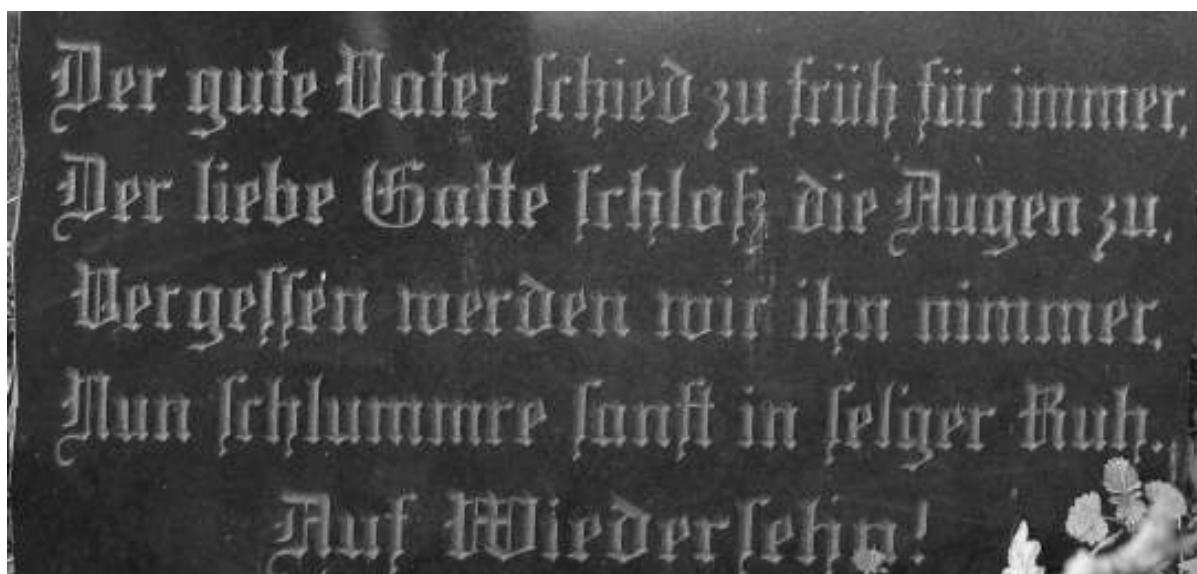 Der gute Vater schied zu früh für immer,
Der liebe Gatte schloß die Augen zu,
Vergessen werden wir ihn nimmer,
Nun schlummre sanft in selger Ruh.
Auf Wiedersehn!